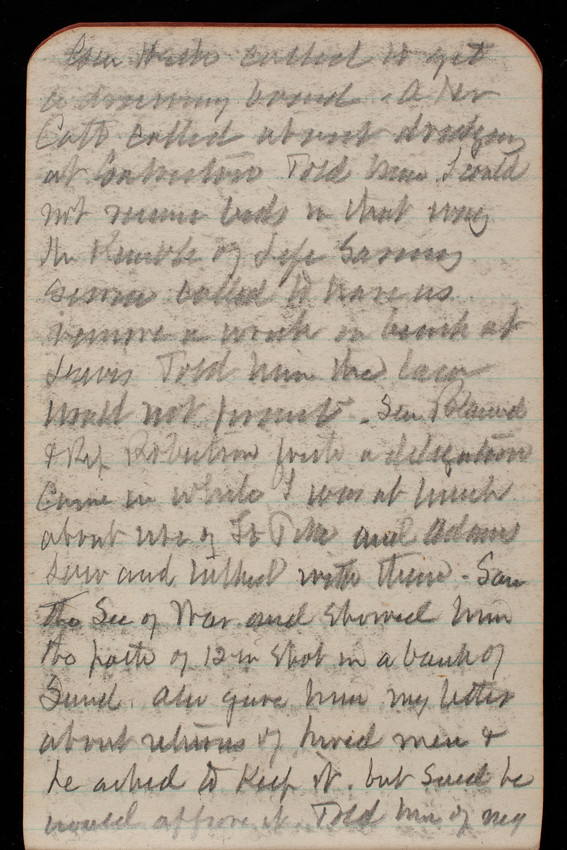 called to get
a drawing board. A Mr
Catt called about dredging
at Galveston Told him I could
not receive bids in that way
Mr Kimble of Life Saving
Service called to have us
remove a wreck on beach at
Lewis Told him the law
would not permit. Sen Blanch
& Rep Robertson with a delegation
came in while I was at lunch
about use of and Adams
and talked with them - Saw
the Sec of War and showed him
the path of 12 in shot in a bank of
Sand. Also gave him my letter
about returns of hired men &
he asked to keep it. but said he
would approve it. Told him of my